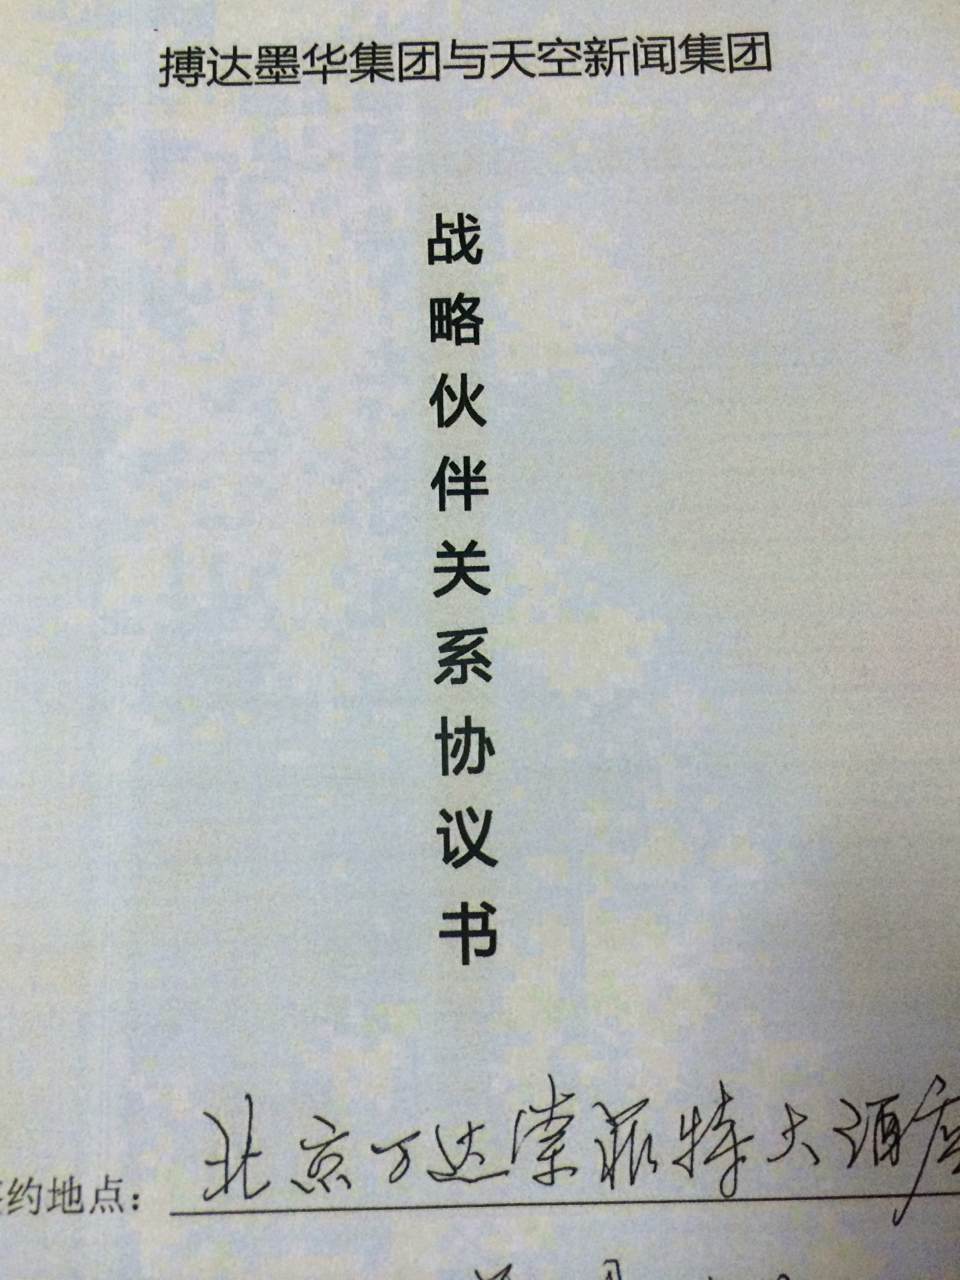 搏达墨华集团与天空新闻集团
战略伙伴关系协议书
约地点：北京万达索菲特大酒店